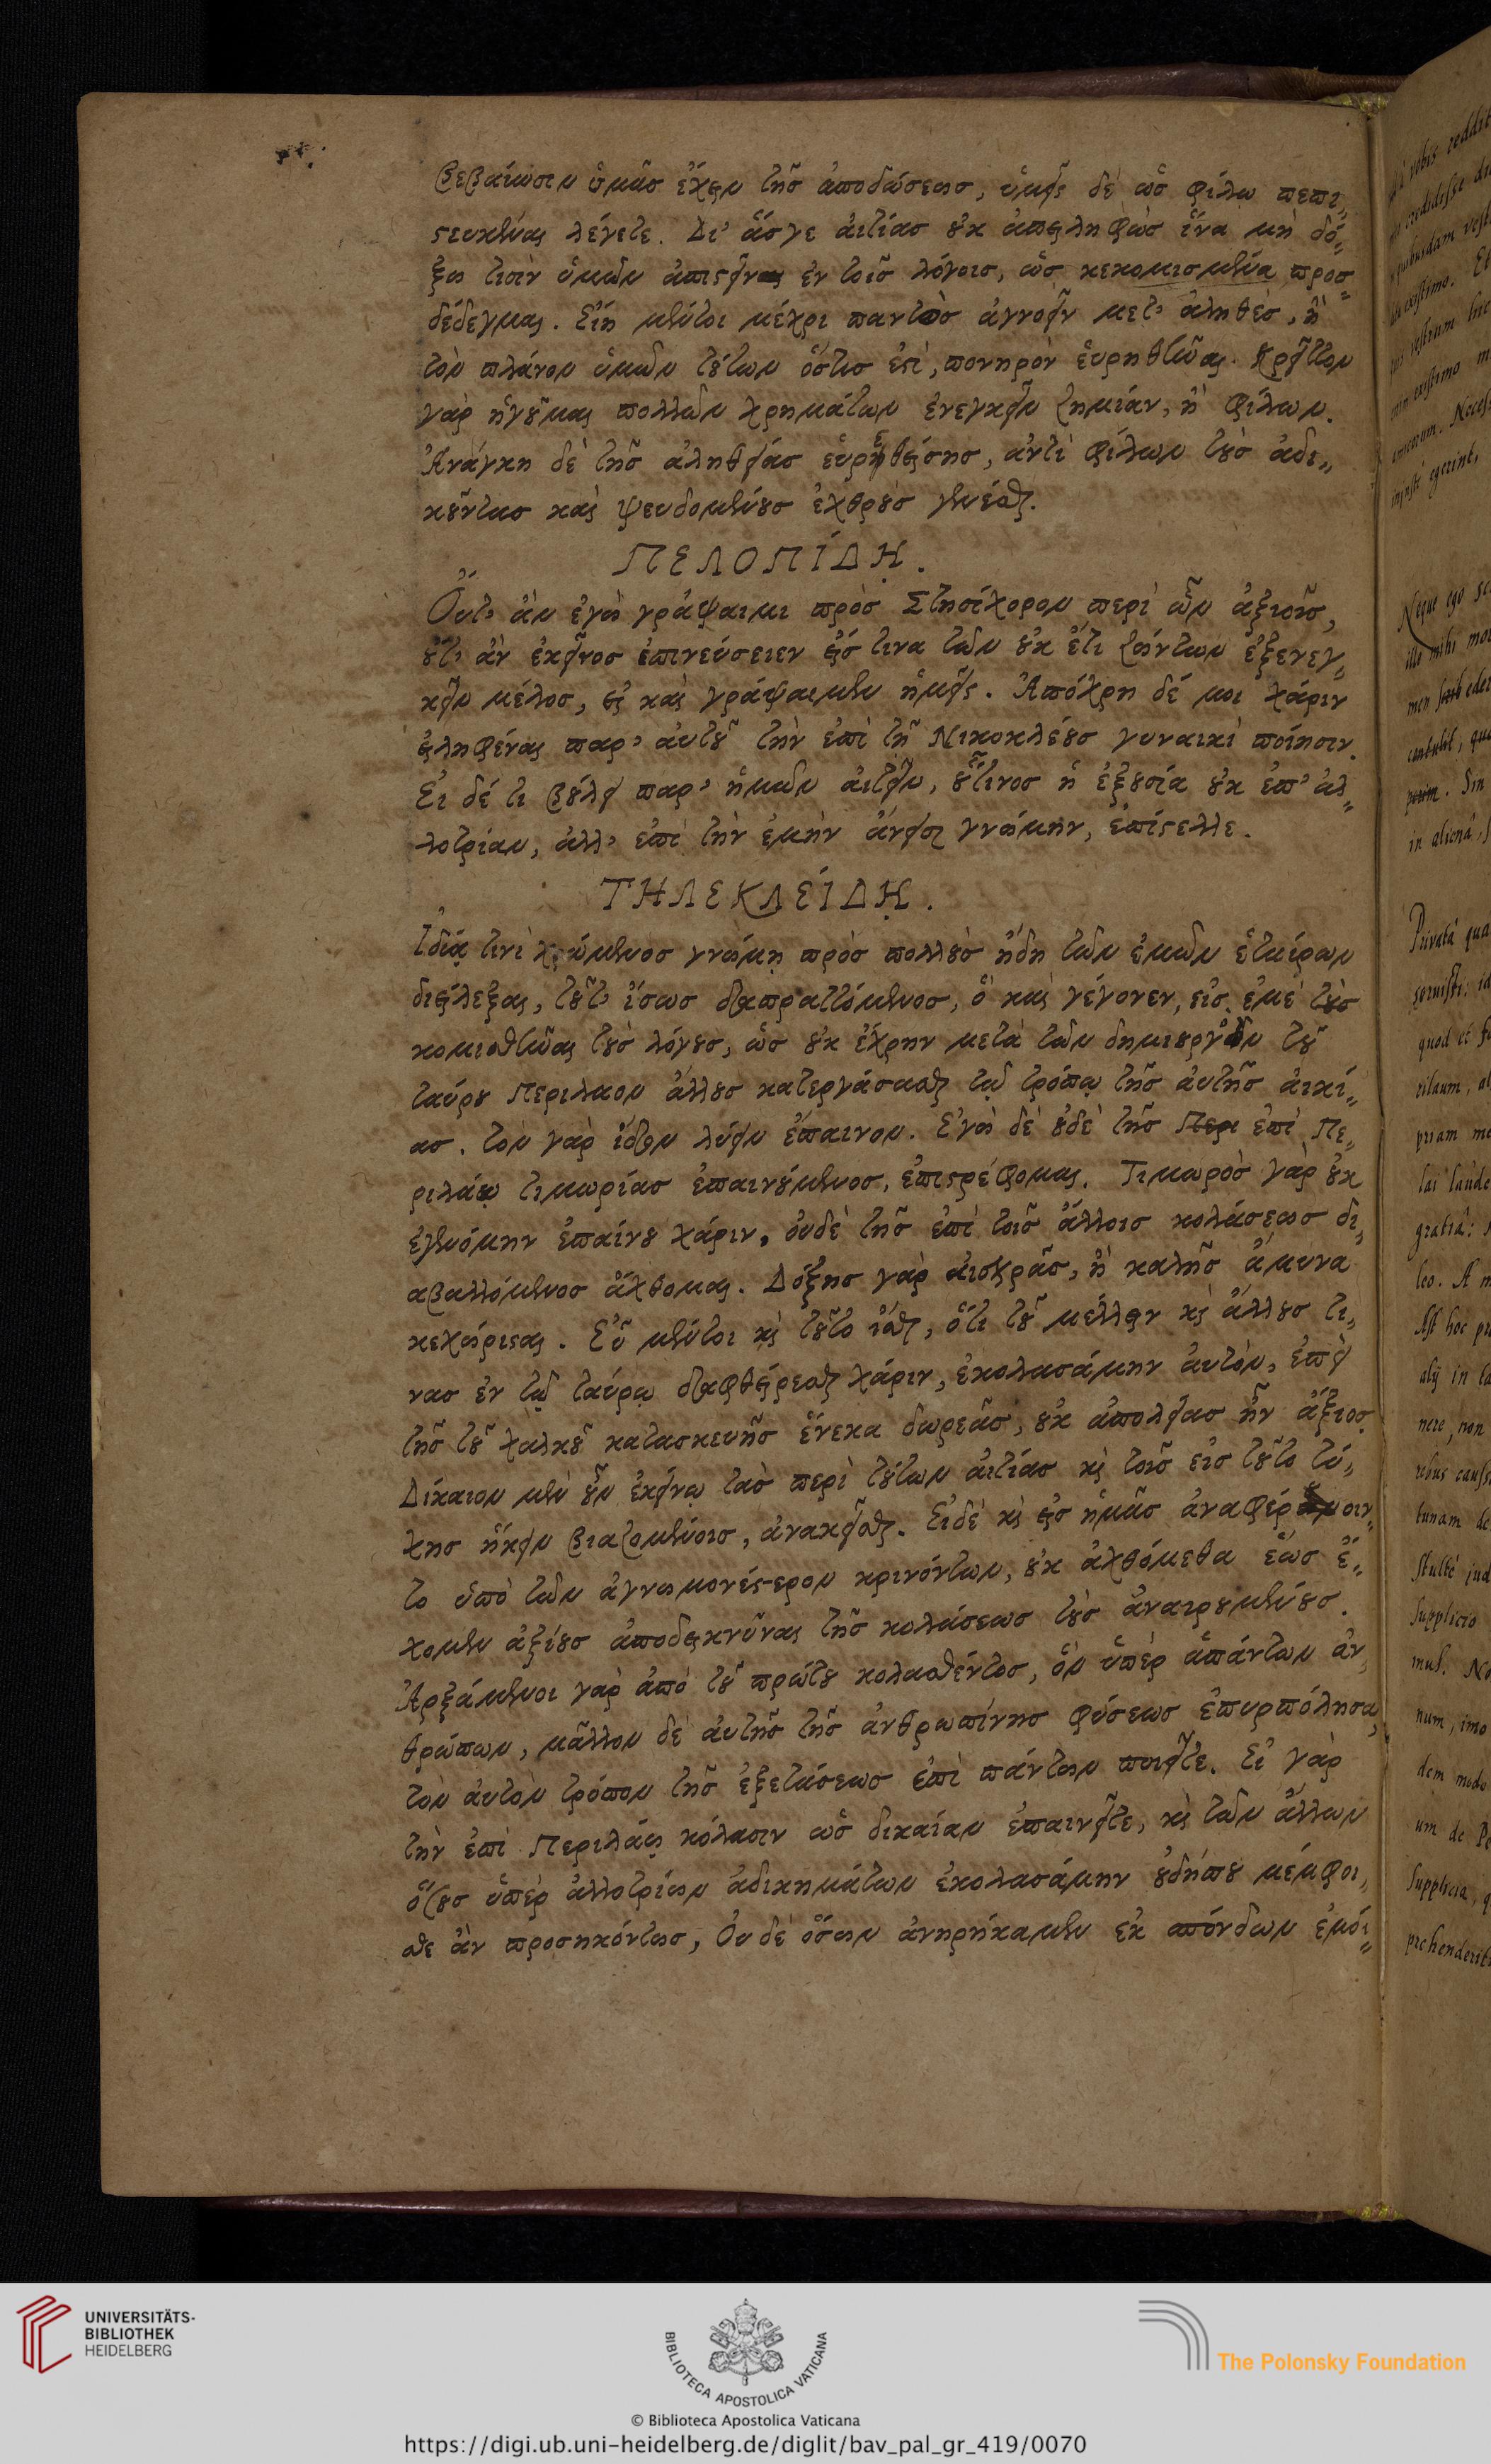 βεβαίωσιν ὑμᾶσ ἔχειν τῆσ ἀποδώσεωσ, ὑμεῖς δὲ ὡσ φίλῳ πεπι„
στευκέναι λέγετε. Δι' ἅσγε αἰτίασ οὐκ ἀπειληφὼσ ἵνα μὴ δό„
ξω τισὶν ὑμῶν ἀπιστεῖναι ἐν τοῖσ λόγοισ, ὡσ κεκομισμένα προσ„
δέδεγμαι. Εἴη μέντοι μέχρι παντὸσ ἀγνοεῖν μετ' ἀληθὲσ, ἢ
τὸν πλάνον ὑμῶν τούτων ὅστισ ἐστὶ, πονηρὸν εὑρηθῆναι. Κρεῖττον
γὰρ ἡγοῦμαι πολλῶν χρημάτων ἐνεγκεῖν ζημίαν, ἢ φίλων.
Ἀνάγκη δὲ τῆσ ἀληθείασ εὑρηθείσησ, ἀντὶ φίλων τοὺσ ἀδι„
κοῦντασ καὶ ψευδομένουσ ἐχθροὺσ γενέσθαι.
ΠΕΛΟΠΊΔΗ.
Οὔτ' ἂν ἐγὼ γράψαιμι πρὸσ Στησίχορον περὶ ὧν ἀξιοῖσ,
οὔτ' ἂν ἐκεῖνοσ ἐπινεύσειεν εἴσ τινα τῶν οὐκ ἔτι ζώντων ἐξενεγ„
κεῖν μέλοσ, εἰ καὶ γράψαιμεν ἡμεῖς. Ἀπόχρη δέ μοι χάριν
εἰληφέναι παρ' αὐτοῦ τὴν ἐπὶ τῇ Νικοκλέουσ γυναικὶ ποίησιν.
Εἰ δέ τι βούλει παρ' ἡμῶν αἰτεῖν, οὗτινοσ ἡ ἐξουσία οὐκ ἐπ' ἀλ„
λοτρίαν, ἀλλ' ἐπὶ τὴν ἐμὴν ἄνεισι γνώμην, ἐπίστελλε.
ΤΗΛΕΚΛΕΊΔΗ.
Ἰδίᾳ τινὶ χρώμενοσ γνώμῃ πρὸσ πολλοὺσ ἤδη τῶν ἐμῶν ἑταίρων
διείλεξαι, τοῦτ' ἴσωσ διαπραττόμενοσ, ὃ καὶ γέγονεν, εἰσ ἐμὲ τοὺσ
κομισθῆναι τοὺσ λόγουσ, ὡσ οὐκ ἐχρην μετὰ τῶν δημιουργὸν τοῦ
ταύρου Περιλαον ἄλλουσ κατεργάσασθαι τῷ τρόπῳ τῆσ αὐτῆσ αἰκί„
ασ. τὸν γὰρ ἴδιον λύειν ἔπαινον. Ἐγὼ δὲ οὐδὲ τῆσ Περι ἐπὶ Πε„
ριλάῳ τιμωρίασ ἐπαινούμενοσ, ἐπιστρέφομαι. Τιμωρὸσ γὰρ οὐκ
ἐγενόμην ἐπαίνου χάριν, οὐδὲ τῆσ ἐπὶ τοῖσ ἄλλοισ κολάσεωσ δι„
αβαλλόμενοσ ἄχθομαι. Δόξησ γὰρ αἰσχρᾶσ, ἢ καλῆσ ἄμυνα
κεχώρισται. Εὖ μέντοι κὶ τοῦτο ἴσθι, ὅτι τοῦ μέλλειν κὶ ἄλλουσ τι„
νασ ἐν τῷ ταύρῳ διαφθείρεσθαι χάριν, ἐκολασάμην αὐτὸν, ἐπεὶ
τῆσ τοῦ χαλκοῦ κατασκευῆσ ἕνεκα δωρεᾶσ, οὐκ ἀπολείασ ἦν ἄξιοσ.
Δίκαιον μὲν οὖν ἐκείνῳ τὰσ περὶ τούτων αἰτίασ κὶ τοῖσ εἰσ τοῦτο τύ„
χησ ἥκειν βιαζομένοισ, ἀνακεῖσθαι. Εἰδὲ κὶ εἰσ ἡμᾶσ ἀναφέροιν„
το ὑπὸ τῶν ἀγνωμονέστερον κρινόντων, οὐκ ἀχθόμεθα ἕωσ ἔ„
χομεν ἀξίουσ ἀποδεικνῦναι τῆσ κολάσεωσ τοὺσ ἀναιρουμένουσ.
Ἀρξάμενοι γὰρ ἀπὸ τοῦ πρώτου κολασθέντοσ, ὃν ὑπὲρ ἁπάντων ἀν„
θρώπων, μᾶλλον δὲ αὐτῆσ τῆσ ἀνθρωπίνησ φύσεωσ ἐπυρπόλησα,
τὸν αὐτὸν τρόπον τῆσ ἐξετάσεωσ ἐπὶ πάντων ποιεῖτε. Εἰ γὰρ
τὴν ἐπὶ Περιλάῳ κόλασιν ὡσ δικαίαν ἐπαινεῖτε, κὶ τῶν ἄλλων
οὓσ ὑπὲρ ἀλλοτρίων ἀδικημάτων ἐκολασάμην οὐδήπου μέμφοι„
σθε ἂν προσηκόντωσ, Οὐ δὲ ὅσων ἀνηρήκαμεν ἐκ σπόνδων ἐμοί„
UNIVERSITÄTS-
BIBLIOTHEK
HEIDELBERG
BIBLIOTECA APOSTOLICA VATICANA
The Polonsky Foundation
© Biblioteca Apostolica Vaticana
https://digi.ub.uni-heidelberg.de/diglit/bav_pal_gr_419/0070